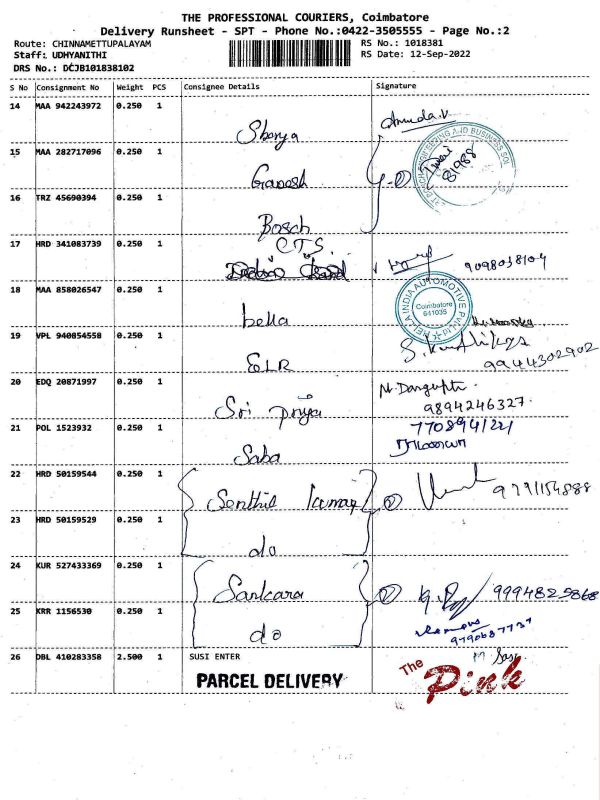 THE PROFESSIONAL COURIERS, Coimbatore
Delivery Runsheet - SPT - Phone No.:0422-3505555 - Page No.:2
Route: CHINNAMETTUPALAYAM
Staff: UDHYANITHI
DRS No.: DCJB101838102
RS No.: 1018381
RS Date: 12-Sep-2022
S No Consignment No Weight PCS Consignee Details Signature
14 MAA 942243972 0.250 1 Sborya
15 MAA 282717096 0.250 1 Ganesh
81988
16 TRZ 45690394 0.250 1 Bosch
17 HRD 341083739 0.250 1 C.T.S. 9098058104
18 MAA 858026547 0.250 1 bella
HELLA INDIA AUTOMOTIVE PVT LTD
Coimbatore
641035
19 VPL 940054558 0.250 1 ELR
9944302902
20 EDQ 20871997 0.250 1 Sri priya
9894246327
21 POL 1523932 0.250 1 Saba
7708941221
22 HRD 50159544 0.250 1 Senthil kumar
9791154888
23 HRD 50159529 0.250 1 do
24 KUR 527433369 0.250 1 Sankara
9994825868
25 KRR 1156530 0.250 1 do
9790687737
26 DBL 410283358 2.500 1 SUSI ENTER
PARCEL DELIVERY
The Pink